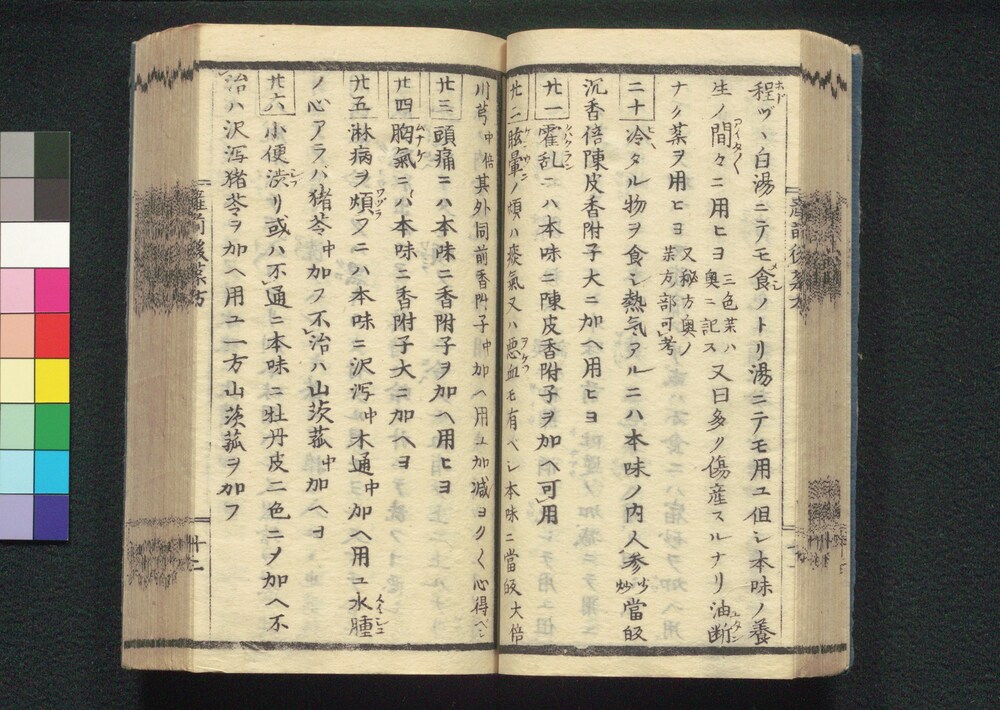 程ヅヽ白湯ニテモ食ノトリ湯ニテモ用ユ但シ本味ノ養
生ノ間々ニ用ヒヨ三色薬ハ奥ニ記ス又曰多ノ傷産スルナリ油断
ナク薬ヲ用ヒヨ又秘方奥ノ薬方部可考
二十冷タル物ヲ食シ熱気アルニハ本味ノ内人参少炒當皈
沉香倍陳皮香附子大ニ加ヘ用ヒヨ
廿一霍乱ニハ本味ニ陳皮香附子ヲ加ヘ可用
廿二眩暈ノ煩ハ痰氣又ハ悪血モ有ベシ本味ニ當皈大倍
川芎中倍其外同前香附子中加ヘ用ユ加減ヨクヽ心得ベシ
廿三頭痛ニハ本味ニ香附子ヲ加ヘ用ヒヨ
廿四胸氣ニハ本味ニ香附子大ニ加ヘヨ
廿五淋病ヲ煩フニハ本味ニ沢泻中木通中加ヘ用ユ水腫
ノ心アラバ猪苓中加フ不治ハ山茨菰中加ヘヨ
廿六小便渋リ或ハ不通ニ本味ニ牡丹皮二色ニメ加ヘ不
治ハ沢泻猪苓ヲ加ヘ用ユ一方山茨菰ヲ加フ
産前後薬方
十二